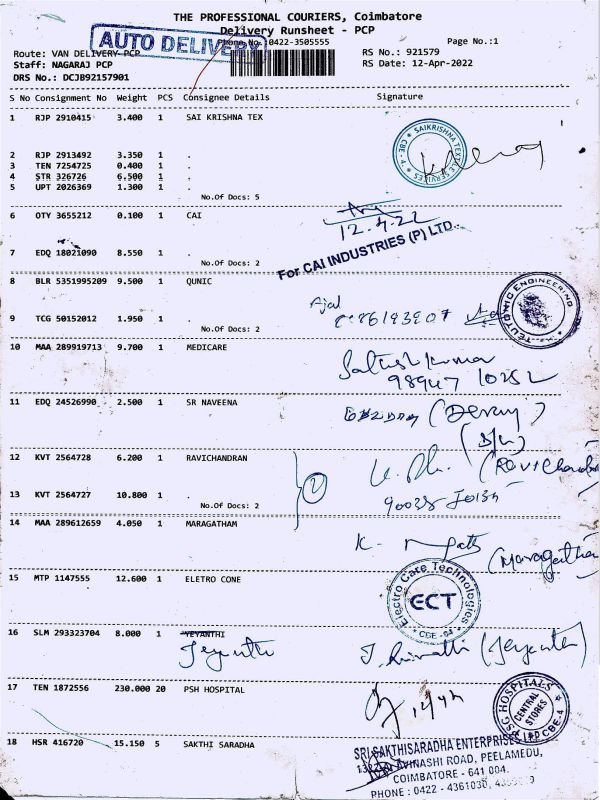 THE PROFESSIONAL COURIERS, Coimbatore
Delivery Runsheet - PCP
AUTO DELIVERY
Phone No.:0422-3505555
Page No.:1
Route: VAN DELIVERY-PCP
RS No.: 921579
Staff: NAGARAJ PCP
RS Date: 12-Apr-2022
DRS No.: DCJB92157901
S No Consignment No Weight PCS Consignee Details Signature
1 RJP 2910415 3.400 1 SAI KRISHNA TEX
SAIKRISHNA TEXTILE SERVICES
CBE - 4
2 RJP 2913492 3.350 1 .
3 TEN 7254725 0.400 1 .
4 STR 326726 6.500 1 .
5 UPT 2026369 1.300 1 .
No.Of Docs: 5
6 OTY 3655212 0.100 1 CAI
12.4.22
For CAI INDUSTRIES (P) LTD.
7 EDQ 18021090 8.550 1 .
No.Of Docs: 2
8 BLR 5351995209 9.500 1 QUNIC
TEUTONIC ENGINEERING
Ajal
9 TCG 50152012 1.950 1 .
No.Of Docs: 2
10 MAA 289919713 9.700 1 MEDICARE
Satush Kumar
98947 10252
11 EDQ 24526990 2.500 1 SR NAVEENA
12 KVT 2564728 6.200 1 RAVICHANDRAN
13 KVT 2564727 10.800 1 .
No.Of Docs: 2
2
14 MAA 289612659 4.050 1 MARAGATHAM
K.
(Maragatha
15 MTP 1147555 12.600 1 ELETRO CONE
Electro Care Technologies
ECT
16 SLM 293323704 8.000 1 YEYANTHI
Jeyanthi
(Jeyanthi)
17 TEN 1872556 230.000 20 PSH HOSPITAL
PSG HOSPITALS
CENTRAL STORES
CBE-4
18 HSR 416720 15.150 5 SAKTHI SARADHA
SRI SAKTHISARADHA ENTERPRISES
AVINASHI ROAD, PEELAMEDU,
COIMBATORE - 641 004.
PHONE : 0422 - 4361030,